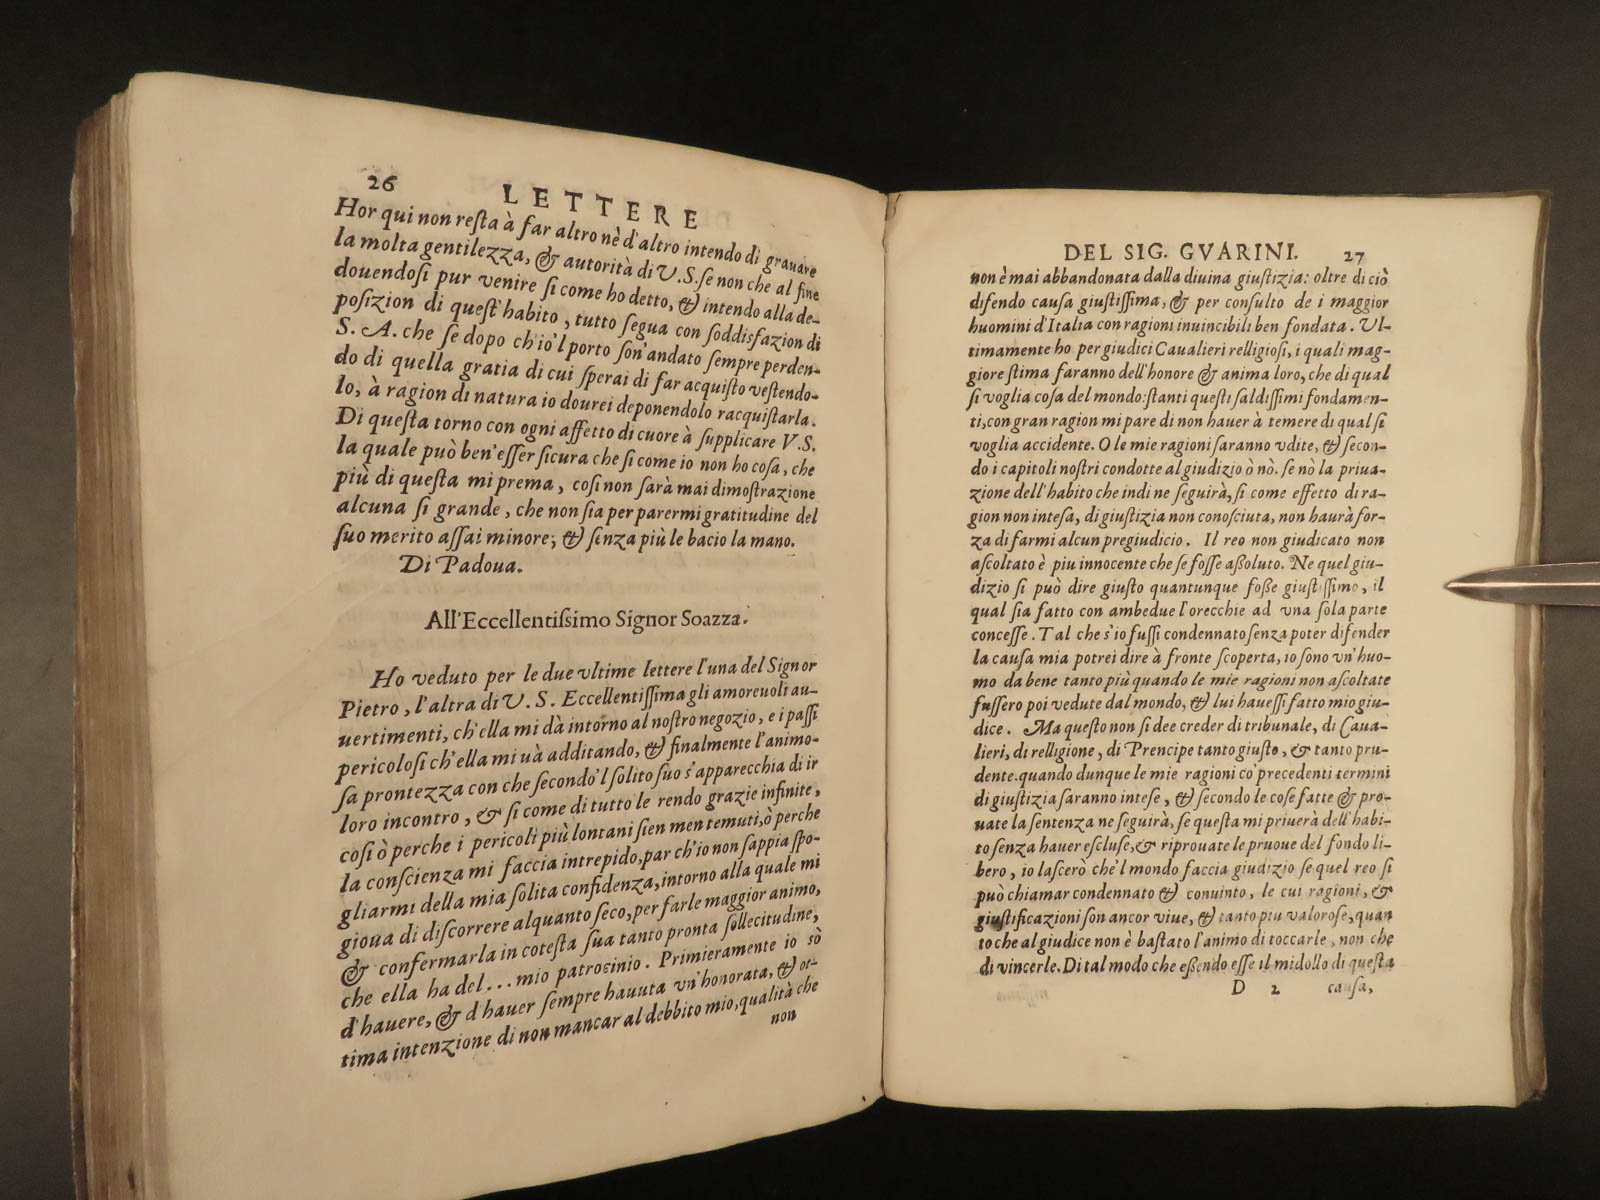 26
LETTERE
Hor qui non reſta à far altro nè d'altro intendo di grauare
la molta gentilezza, & autorità di V.S. ſe non che al fine
douendoſi pur venire ſi come ho detto, & intendo alla de-
poſizion di queſt'habito, tutto ſegua con ſoddisfazion di
S. A. che ſe dopo ch'io'l porto ſon'andato ſempre perden-
do di quella gratia di cui ſperai di far acquiſto veſtendo-
lo, à ragion di natura io dourei deponendolo racquiſtarla.
Di queſta torno con ogni affetto di cuore à ſupplicare V.S.
la quale può ben'eſſer ſicura che ſi come io non ho coſa, che
più di queſta mi prema, coſi non ſarà mai dimoſtrazione
alcuna ſi grande, che non ſia per parermi gratitudine del
ſuo merito aſſai minore; & ſenza più le bacio la mano.
Di Padoua.
All'Eccellentiſsimo Signor Soazza.
Ho veduto per le due vltime lettere l'una del Signor
Pietro, l'altra di V. S. Eccellentiſſima gli amoreuoli au-
uertimenti, ch'ella mi dà intorno al noſtro negozio, e i paſſi
pericoloſi ch'ella mi uà additando, & finalmente l'animo-
ſa prontezza con che ſecondo'l ſolito ſuo s'apparecchia di ir
loro incontro, & ſi come di tutto le rendo grazie infinite,
coſi ò perche i pericoli più lontani ſien men temuti, ò perche
la conſcienza mi faccia intrepido, par ch'io non ſappia ſpo-
gliarmi della mia ſolita confidenza, intorno alla quale mi
gioua di diſcorrere alquanto ſeco, per farle maggior animo,
& confermarla in coteſta ſua tanto pronta ſollecitudine,
che ella ha del... mio patrocinio. Primieramente io sò
d'hauere, & d'hauer ſempre hauuta vn'honorata, & ot-
tima intenzione di non mancar al debbito mio, qualità che
non
DEL SIG. GVARINI. 27
non è mai abbandonata dalla diuina giuſtizia: oltre di ciò
difendo cauſa giuſtiſſima, & per conſulto de i maggior
huomini d'Italia con ragioni inuincibili ben fondata. Vl-
timamente ho per giudici Caualieri relligioſi, i quali mag-
giore ſtima faranno dell'honore & anima loro, che di qual
ſi voglia coſa del mondo: ſtanti queſti ſaldiſſimi fondamen-
ti, con gran ragion mi pare di non hauer à temere di qual ſi
voglia accidente. O le mie ragioni ſaranno vdite, & ſecon-
do i capitoli noſtri condotte al giudizio ò nò. ſe nò la priua-
zione dell'habito che indi ne ſeguirà, ſi come effetto di ra-
gion non inteſa, di giuſtizia non conoſciuta, non haurà for-
za di farmi alcun pregiudicio. Il reo non giudicato non
aſcoltato è piu innocente che ſe foſſe aſſoluto. Ne quel giu-
dizio ſi può dire giuſto quantunque foſſe giuſtiſſimo, il
qual ſia fatto con ambedue l'orecchie ad vna ſola parte
conceſſe. Tal che s'io fuſſi condennato ſenza poter difender
la cauſa mia potrei dire à fronte ſcoperta, io ſono vn'huo-
mo da bene tanto più quando le mie ragioni non aſcoltate
fuſſero poi vedute dal mondo, & lui haueſſi fatto mio giu-
dice. Ma queſto non ſi dee creder di tribunale, di Caua-
lieri, di relligione, di Prencipe tanto giuſto, & tanto pru-
dente. quando dunque le mie ragioni co' precedenti termini
di giuſtizia ſaranno inteſe, & ſecondo le coſe fatte & pro-
uate la ſentenza ne ſeguirà, ſe queſta mi priuerà dell'habi-
to ſenza hauer eſcluſe, & riprouate le pruoue del fondo li-
bero, io laſcerò che'l mondo faccia giudizio ſe quel reo ſi
può chiamar condennato & conuinto, le cui ragioni, &
giuſtificazioni ſon ancor viue, & tanto piu valoroſe, quan
to che al giudice non è baſtato l'animo di toccarle, non che
di vincerle. Di tal modo che eſſendo eſſe il midollo di queſta
D 2 cauſa,